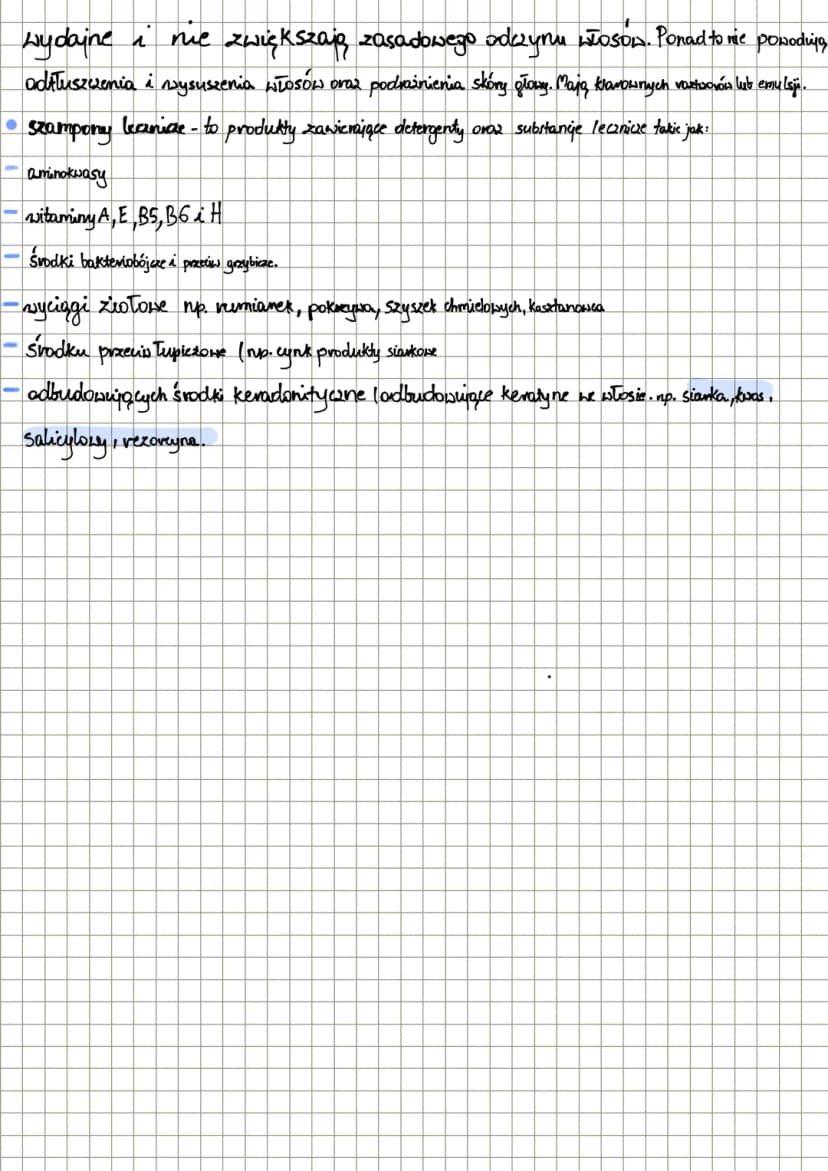 wydajne i nie zwiększają zasadowego odczynu włosów. Ponad to nie powodują
odtłuszczenia i wysuszenia włosów oraz podrażnienia skóry głowy. Mają lub emulsji.
• szampony lecznicze - to produkty zawierające detergenty oraz substancje lecznicze takie jak:
- aminokwasy
- witaminy A, E, B5, B6 i H
- środki bakteriobójcze i przeciw grzybicze.
- wyciągi ziołowe np. rumianek, pokrzywa, szyszek chmielowych, kasztanowca
- środku przeciw łupieżowe (np. cynk produkty siarkowe
- odbudowujących środki (odbudowujące keratyne we włosie. np. siarka, kwas,
salicylowy, rezorcyna.